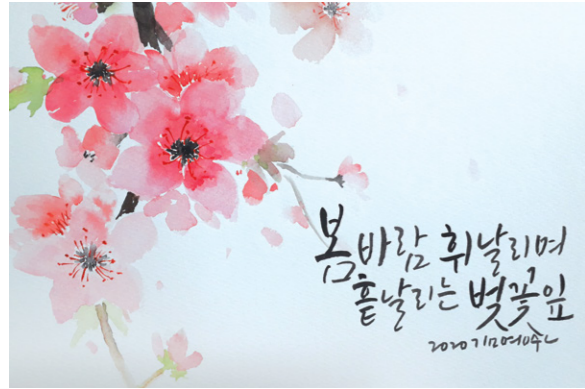 봄바람 휘날리며
흩날리는 벚꽃잎
2020